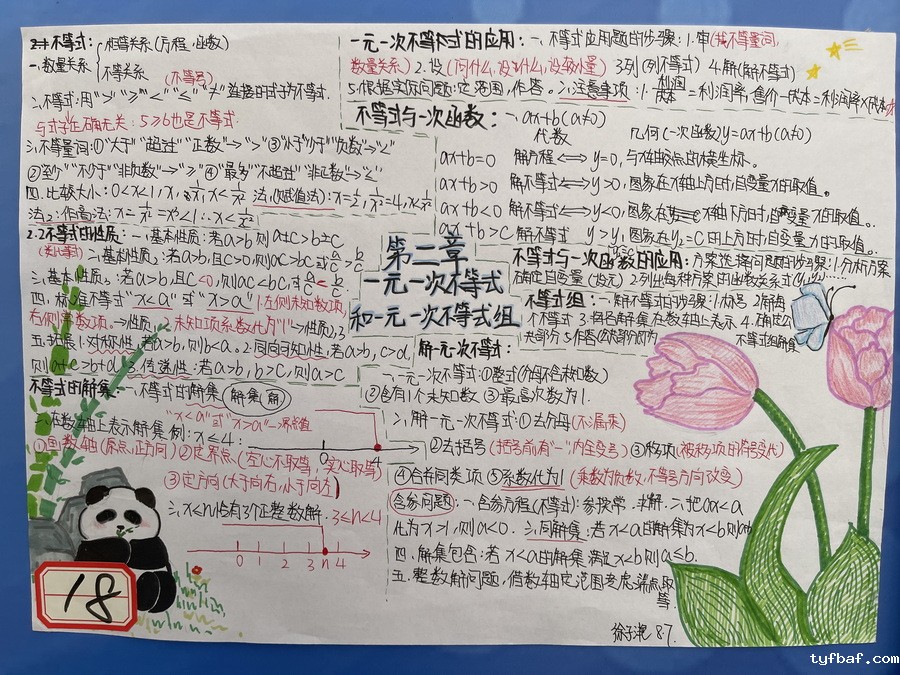 2.1 不等式：
一、数量关系
相等关系(方程、函数)
不等关系
(不等号)
二、不等式：用">""≥""<""≤""≠"连接的式子为不等式.
与式子正确无关：5≥6也是不等式.
三、不等量词：①"大于""超过""正数"→">" ③"小于""负数"→"<"
②"至少""不少于""非负数"→"≥" ④"最多""不超过""非正数"→"≤"
2.2 不等式的性质：一、基本性质：若a>b,则a±c>b±c
(类比等式) 二、基本性质2：若a>b,且c>0,则ac>bc或a/c>b/c
三、基本性质3：若a>b,且c<0,则ac<bc,或a/c<b/c
四、标准不等式"x<a"或"x>a" 1.左侧未知数项,
右侧常数项.→性质1 2.未知项系数化为"1"→性质2,3
五、拓展：1.对称性：若a>b,则b<a。2.同向可加性：若a>b,c>d,
则a+c>b+d 3.传递性：若a>b,b>c,则a>c
不等式的解集：一、不等式的解集(解集 解)
"x<a"或"x>a"→界点值
二、在数轴上表示解集 例：x≤4：
0
4
①画数轴(原点,正方向) ②定界点(空心不取等,实心取等)
③定方向(大于向右,小于向左)
三、x<n恰有3个正整数解. 3≤n<4
0 1 2 3 n 4
第二章
一元一次不等式
和一元一次不等式组
一元一次不等式的应用：一、不等式应用题的步骤：1.审(找不等量词,
数量关系) 2.设(问什么,设什么,设较小量) 3.列(列不等式) 4.解(解不等式)
5.根据实际问题：定范围,作答。二、注意事项：1.利润/成本=利润率,售价-成本=利润率×成本
不等式与一次函数：一、ax+b(a≠0)
代数 几何(一次函数)y=ax+b(a≠0)
ax+b=0 解方程⟺y=0,与x轴交点的横坐标。
ax+b>0 解不等式⟺y>0,图象在x轴上方时,自变量x的取值。
ax+b<0 解不等式⟺y<0,图象在x轴下方时,自变量x的取值。
ax+b>c 解不等式 y>y₂,图象在y₂=c的上方时,自变量x的取值。
不等式与一次函数的应用：方案选择问题的步骤：1.分析方案
确定自变量(设元) 2.列出每种方案的函数关系式
不等式组：一、解不等式的步骤：1.标号 2.解每
个不等式 3.将各解集在数轴上表示 4.确定公
共部分 5.作答(公共部分即为
不等式组解集
解一元一次不等式：
一、一元一次不等式：①整式(分母不含未知数)
②含有1个未知数 ③最高次数为1.
二、解一元一次不等式：①去分母(不漏乘)
②去括号(括号前有"-",内住变号) ③移项(被移项的符号变化)
④合并同类项 ⑤系数化为1(乘数为负数,不等号方向改变)
含参问题：一、含参方程(不等式)：参按常,求解.二、把ax<a
化为x>1,则a<0. 三、同解集：若x<a的解集为x<b则a=b
四、解集包含：若x<a的解集满足x<b则a≤b.
五、整数解问题,借数轴定范围考虑端点取
等.
18
8.7.
tyfbaf.com